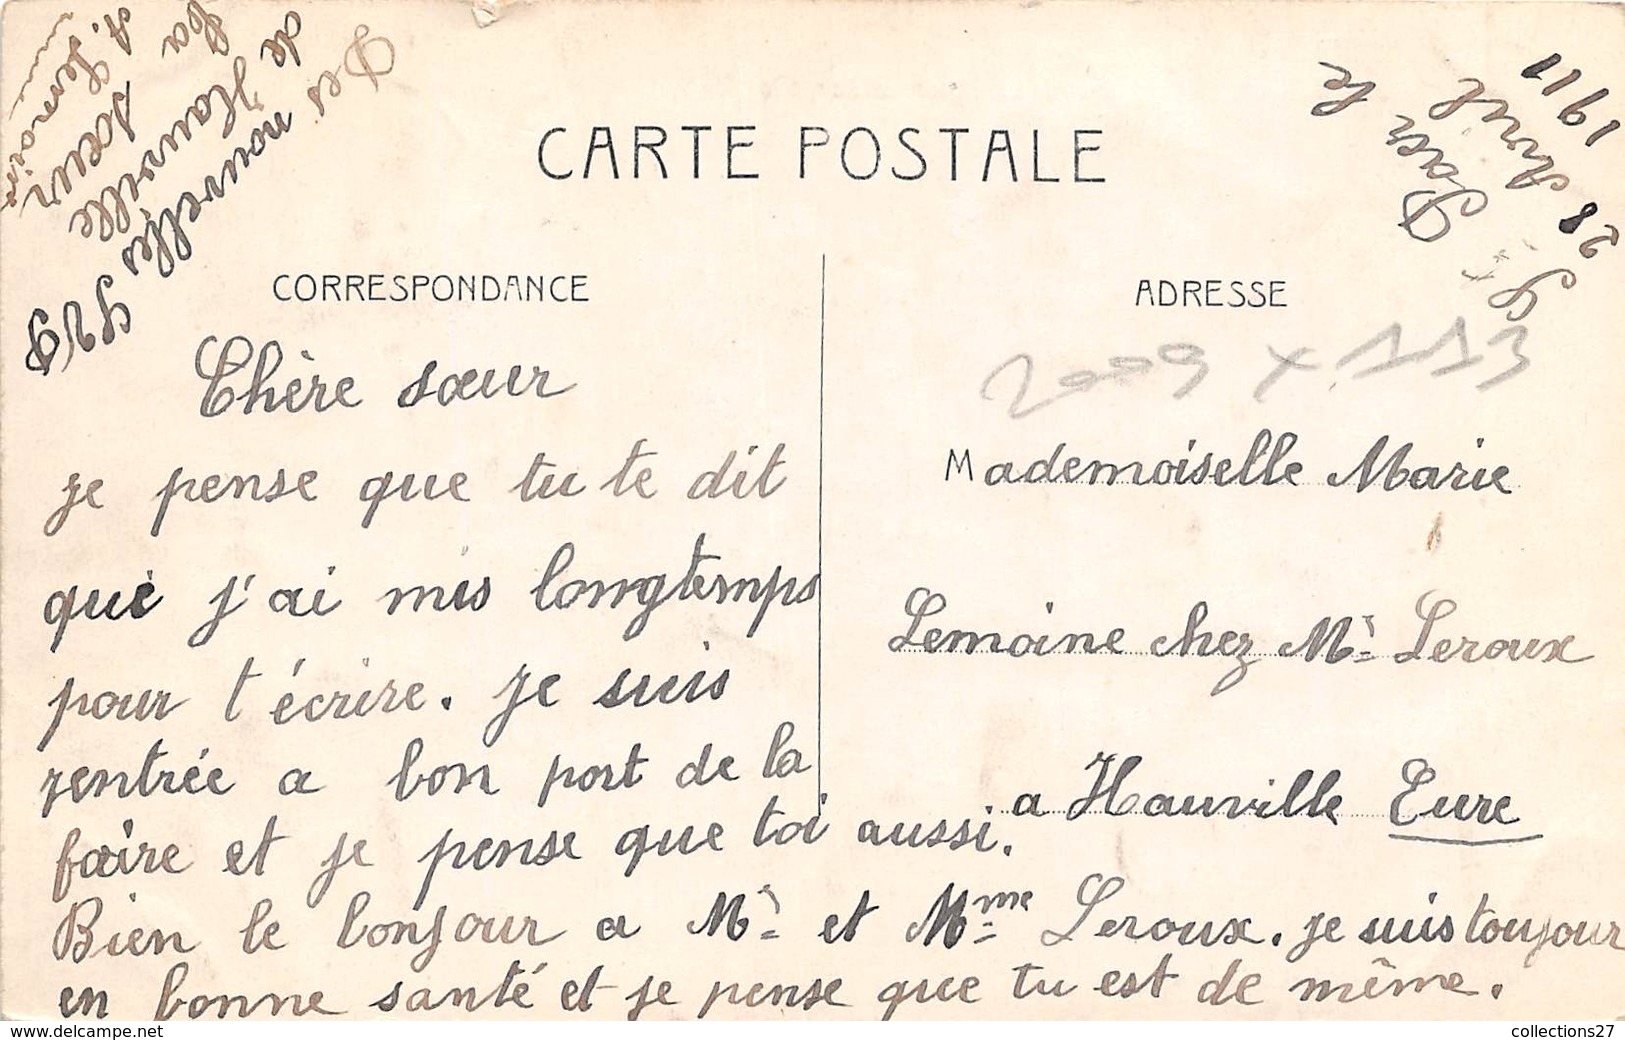 Des nouvelles
de Hauville
ta
sœur
A. Lemoine
CARTE POSTALE
le
28 Avril
1911
CORRESPONDANCE
ADRESSE
2009 x 113
Chère sœur
je pense que tu te dit
que j'ai mis longtemps
pour t'écrire. je suis
rentrée a bon port de la
foire et je pense que toi aussi.
Bien le bonjour a Mr et Mme Leroux. je suis toujour
en bonne santé et je pense que tu est de même.
Mademoiselle Marie
Lemoine chez Mr Leroux
a Hauville Eure
collections27